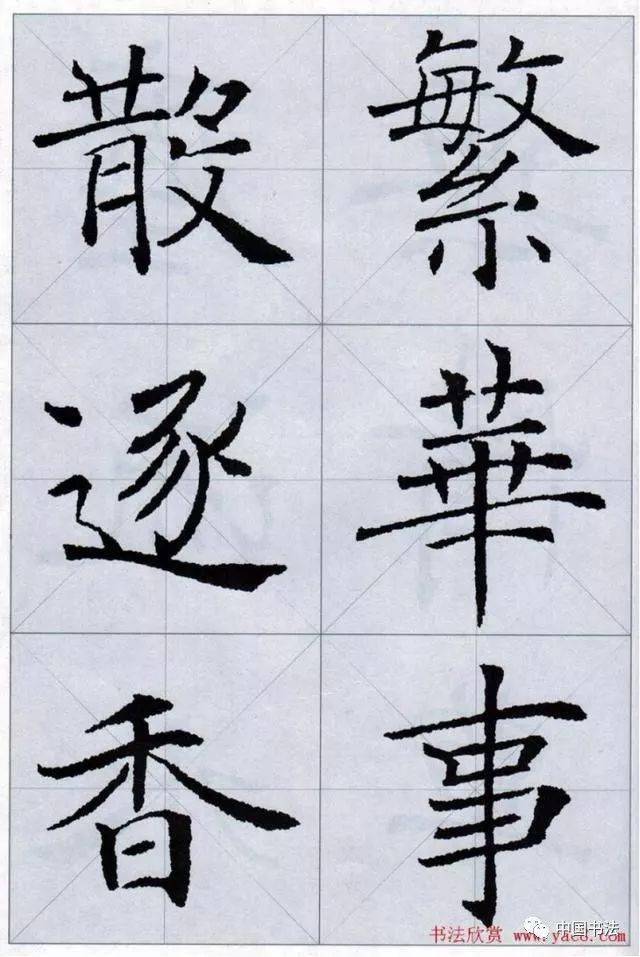 繁華事
散逐香
书法欣赏 www.yac8.com
中国书法